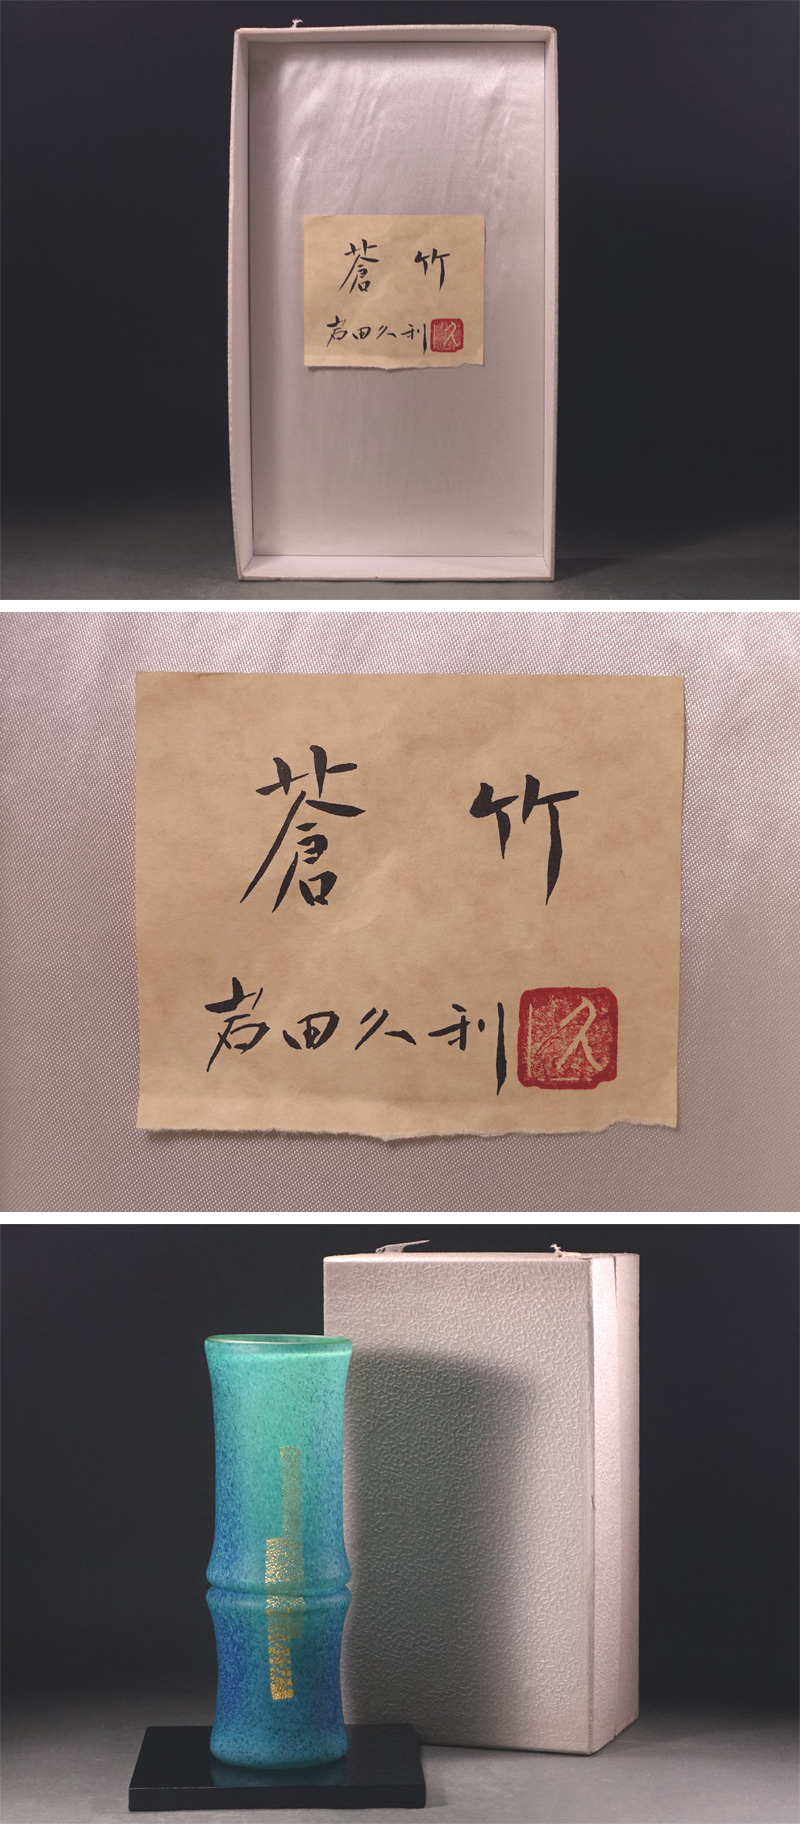 蒼竹
岩田久利
久
蒼竹
岩田久利
久